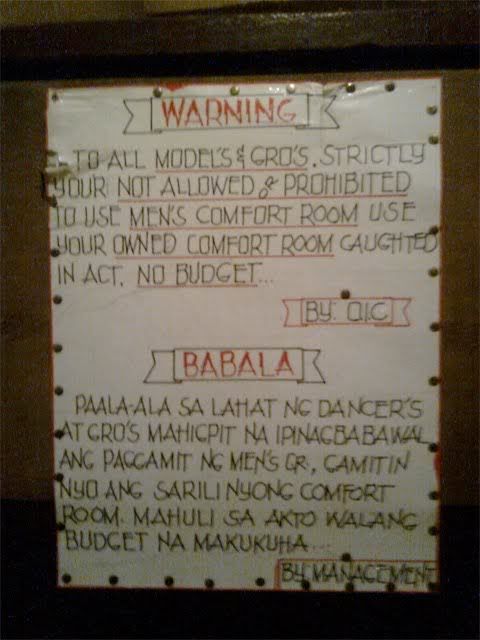 WARNING
TO ALL MODEL'S & GRO'S. STRICTLY
YOUR NOT ALLOWED & PROHIBITED
TO USE MEN'S COMFORT ROOM USE
YOUR OWNED COMFORT ROOM CAUGHTED
IN ACT. NO BUDGET...
BY: O.I.C
BABALA
PAALA-ALA SA LAHAT NG DANCER'S
AT GRO'S MAHIGPIT NA IPINAGBABAWAL
ANG PAGGAMIT NG MEN'S CR., GAMITIN
NYO ANG SARILI NYONG COMFORT
ROOM. MAHULI SA AKTO WALANG
BUDGET NA MAKUKUHA...
BY: MANAGEMENT